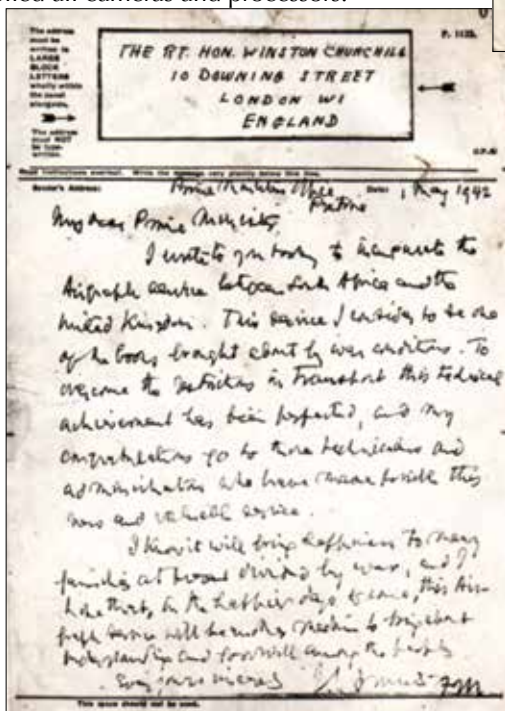 med all cameras and processors.
The address
must be
written in
LARGE
BLOCK
LETTERS
wholly within
the panel
alongside.
The address
must NOT
be type-
written.
THE RT. HON. WINSTON CHURCHILL
10 DOWNING STREET
LONDON W1
ENGLAND
Sender's Address: Prime Minister's Office Date: 1 May 1942
Pretoria
My dear Prime Minister,
I write to you today to inaugurate the
Airgraph service between South Africa and the
United Kingdom. This service I consider to be one
of the boons brought about by war conditions. To
overcome the restrictions in transport this technical
achievement has been perfected, and my
congratulations go to those technicians and
administrators who have made possible this
new and valuable service.
I know it will bring happiness to many
families at present divided by war, and I
hope that, in the happier days to come, this Air-
graph service will be another medium to bring about
understanding and goodwill among the peoples
Ever yours sincerely
This space should not be used.